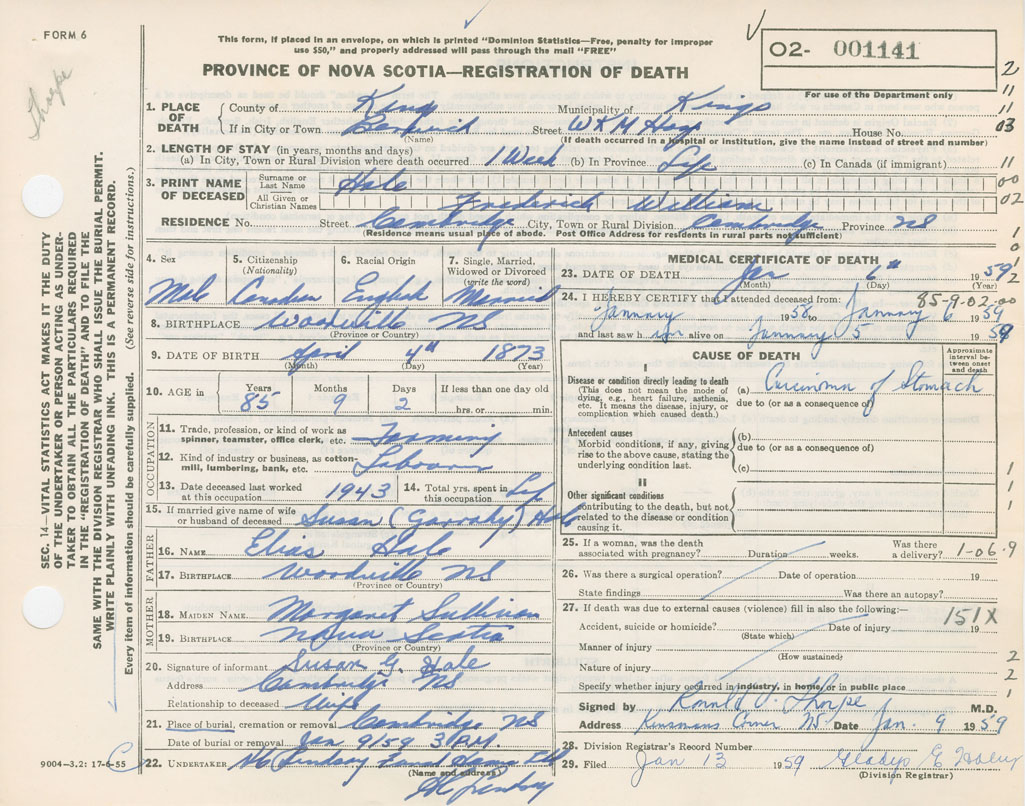 FORM 6
This form, if placed in an envelope, on which is printed "Dominion Statistics—Free, penalty for improper
use $50," and properly addressed will pass through the mail "FREE"
PROVINCE OF NOVA SCOTIA—REGISTRATION OF DEATH
O2- 001141
For use of the Department only
Thorpe
SEC. 14—VITAL STATISTICS ACT MAKES IT THE DUTY
OF THE UNDERTAKER OR PERSON ACTING AS UNDER-
TAKER TO OBTAIN ALL THE PARTICULARS REQUIRED
IN THE "REGISTRATION OF DEATH" AND TO FILE THE
SAME WITH THE DIVISION REGISTRAR WHO SHALL ISSUE THE BURIAL PERMIT.
WRITE PLAINLY WITH UNFADING INK. THIS IS A PERMANENT RECORD.
Every item of information should be carefully supplied. (See reverse side for instructions.)
1. PLACE OF DEATH
County of Kings Municipality of Kings
If in City or Town Berwick Street W K M Hosp House No.
(Name) (If death occurred in a hospital or institution, give the name instead of street and number)
2. LENGTH OF STAY (in years, months and days)
(a) In City, Town or Rural Division where death occurred 1 Week (b) In Province Life (c) In Canada (if immigrant)
3. PRINT NAME OF DECEASED
Surname or Last Name Hale
All Given or Christian Names Frederick William
RESIDENCE No. Street Cambridge City, Town or Rural Division Cambridge Province NS
(Residence means usual place of abode. Post Office Address for residents in rural parts not sufficient)
4. Sex Male
5. Citizenship (Nationality) Canadian
6. Racial Origin English
7. Single, Married, Widowed or Divorced (write the word) Married
8. BIRTHPLACE Woodville NS
(Province or Country)
9. DATE OF BIRTH April 4th 1873
(Month) (Day) (Year)
10. AGE in Years 85 Months 9 Days 2 If less than one day old hrs. or min.
OCCUPATION
11. Trade, profession, or kind of work as spinner, teamster, office clerk, etc. Farming
12. Kind of industry or business, as cotton-mill, lumbering, bank, etc. Labourer
13. Date deceased last worked at this occupation 1943
14. Total yrs. spent in this occupation Life
15. If married give name of wife or husband of deceased Susan Hale
FATHER
16. NAME Elias Hale
17. BIRTHPLACE Woodville NS
(Province or Country)
MOTHER
18. MAIDEN NAME Margaret Sullivan
19. BIRTHPLACE Nova Scotia
(Province or Country)
20. Signature of informant Susan G. Hale
Address Cambridge NS
Relationship to deceased Wife
21. Place of burial, cremation or removal Cambridge NS
Date of burial or removal Jan 9/59 3 P.M.
22. UNDERTAKER Lindsay
(Name and address)
Lindsay
9004-3.2: 17-6-55
MEDICAL CERTIFICATE OF DEATH
23. DATE OF DEATH Jan 6th 1959
(Month) (Day) (Year)
85-9-02-00
24. I HEREBY CERTIFY that I attended deceased from:
January 1958 to January 6 1959
and last saw him alive on January 5 1959
CAUSE OF DEATH
Approximate interval between onset and death
I
Disease or condition directly leading to death
(This does not mean the mode of dying, e.g., heart failure, asthenia, etc. It means the disease, injury, or complication which caused death.)
(a) Carcinoma of Stomach
due to (or as a consequence of)
Antecedent causes
Morbid conditions, if any, giving rise to the above cause, stating the underlying condition last.
(b)
due to (or as a consequence of)
(c)
II
Other significant conditions
contributing to the death, but not related to the disease or condition causing it.
25. If a woman, was the death associated with pregnancy? Duration weeks. Was there a delivery? 1-06.9
26. Was there a surgical operation? Date of operation 19
State findings Was there an autopsy?
27. If death was due to external causes (violence) fill in also the following:— 151X
Accident, suicide or homicide? Date of injury 19
(State which)
Manner of injury
(How sustained)
Nature of injury
Specify whether injury occurred in industry, in home, or in public place
Signed by Ronald Thorpe M.D.
Address Kinsmans Corner NS Date Jan. 9 1959
28. Division Registrar's Record Number
29. Filed Jan 13 1959 Gladys E
(Division Registrar)
2
11
11
03
11
00
02
1
0
1
2
1
1
1
1
2
2
1